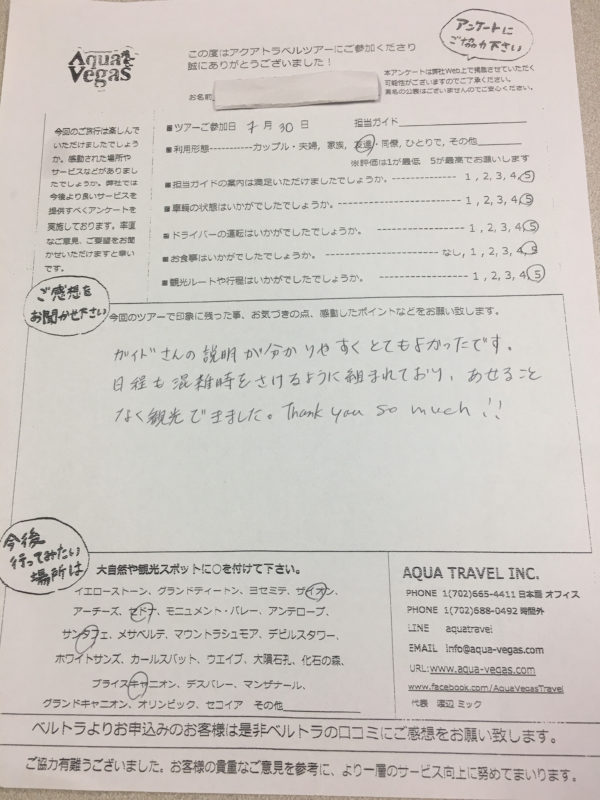 Aqua Vegas
この度はアクアトラベルツアーにご参加くださり
誠にありがとうございました！
アンケートに
ご協力下さい
本アンケートは弊社Web上で掲載させていただく
可能性がございますのでご了承ください。
実名の公表はございませんのでご安心ください。
お名前
今回のご旅行は楽しんで
いただけましたでしょう
か。感動された場所や
サービスなどがありまし
たでしょうか。弊社では
今後より良いサービスを
提供すべくアンケートを
実施しております。率直
なご意見、ご要望をお聞
かせいただけますと幸い
です。
■ツアーご参加日 7月30日 担当ガイド
■利用形態-----------カップル・夫婦, 家族, 友達・同僚, ひとりで, その他
※評価は1が最低 5が最高でお願いします
■担当ガイドの案内は満足いただけましたでしょうか。 --------- 1, 2, 3, 4, 5
■車輛の状態はいかがでしたでしょうか。 ---------------- 1, 2, 3, 4, 5
■ドライバーの運転はいかがでしたでしょうか。 ------------- 1, 2, 3, 4, 5
■お食事はいかがでしたでしょうか。 ------------- なし, 1, 2, 3, 4, 5
■観光ルートや行程はいかがでしたでしょうか。 -------------- 1, 2, 3, 4, 5
ご感想を
お聞かせ下さい
今回のツアーで印象に残った事、お気づきの点、感動したポイントなどをお願い致します。
ガイドさんの説明が分かりやすくとてもよかったです。
日程も混雑時をさけるように組まれており、あせること
なく観光できました。Thank you so much!!
今後
行ってみたい
場所は
大自然や観光スポットに○を付けて下さい。
イエローストーン、グランドティートン、ヨセミテ、ザイオン、
アーチーズ、セドナ、モニュメント・バレー、アンテロープ、
サンタフェ、メサベルデ、マウントラシュモア、デビルスタワー、
ホワイトサンズ、カールスバット、ウエイブ、大隕石孔、化石の森、
ブライスキャニオン、デスバレー、マンザナール、
グランドキャニオン、オリンピック、セコイア その他
AQUA TRAVEL INC.
PHONE 1(702)665-4411 日本語 オフィス
PHONE 1(702)688-0492 時間外
LINE aquatravel
EMAIL info@aqua-vegas.com
URL:www.aqua-vegas.com
www.facebook.com/AquaVegasTravel
代表 渡辺 ミック
ベルトラよりお申込みのお客様は是非ベルトラの口コミにご感想をお願い致します。
ご協力有難うございました。お客様の貴重なご意見を参考に、より一層のサービス向上に努めてまいります。